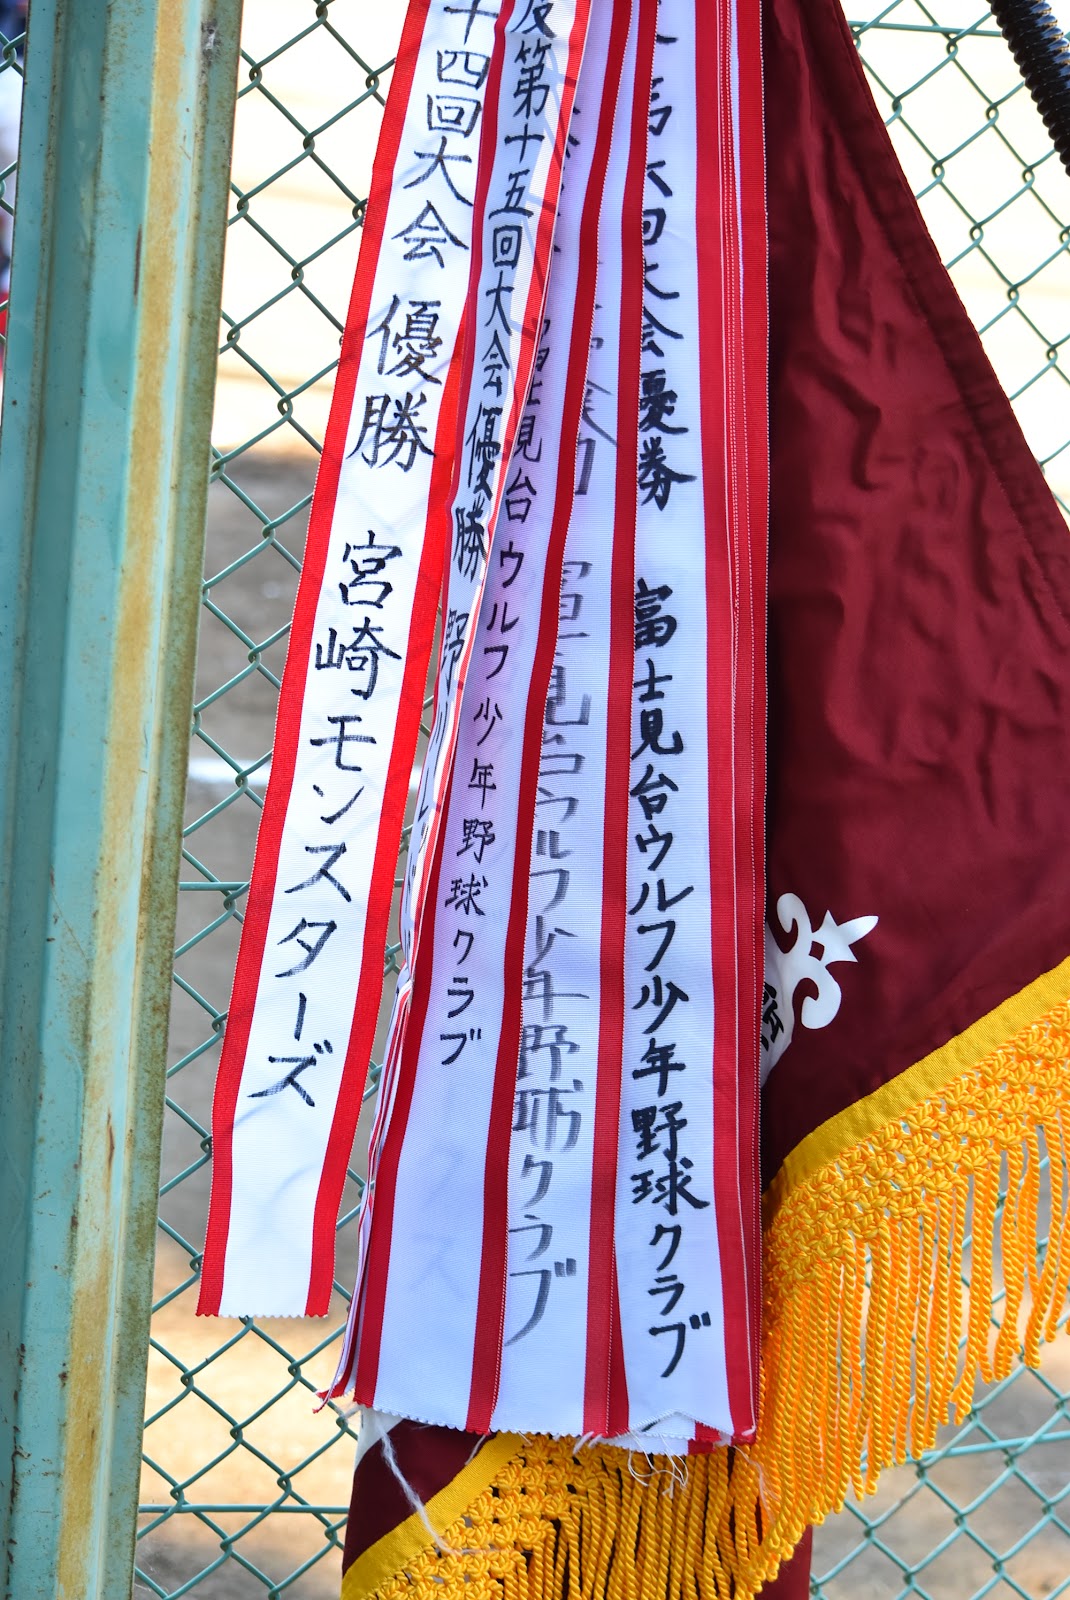 十四回大会 優勝 宮崎モンスターズ
第十五回大会優勝 野川レッド
見台ウルフ少年野球クラブ
富士見台ウルフ少年野球クラブ
第六回大会優勝 富士見台ウルフ少年野球クラブ